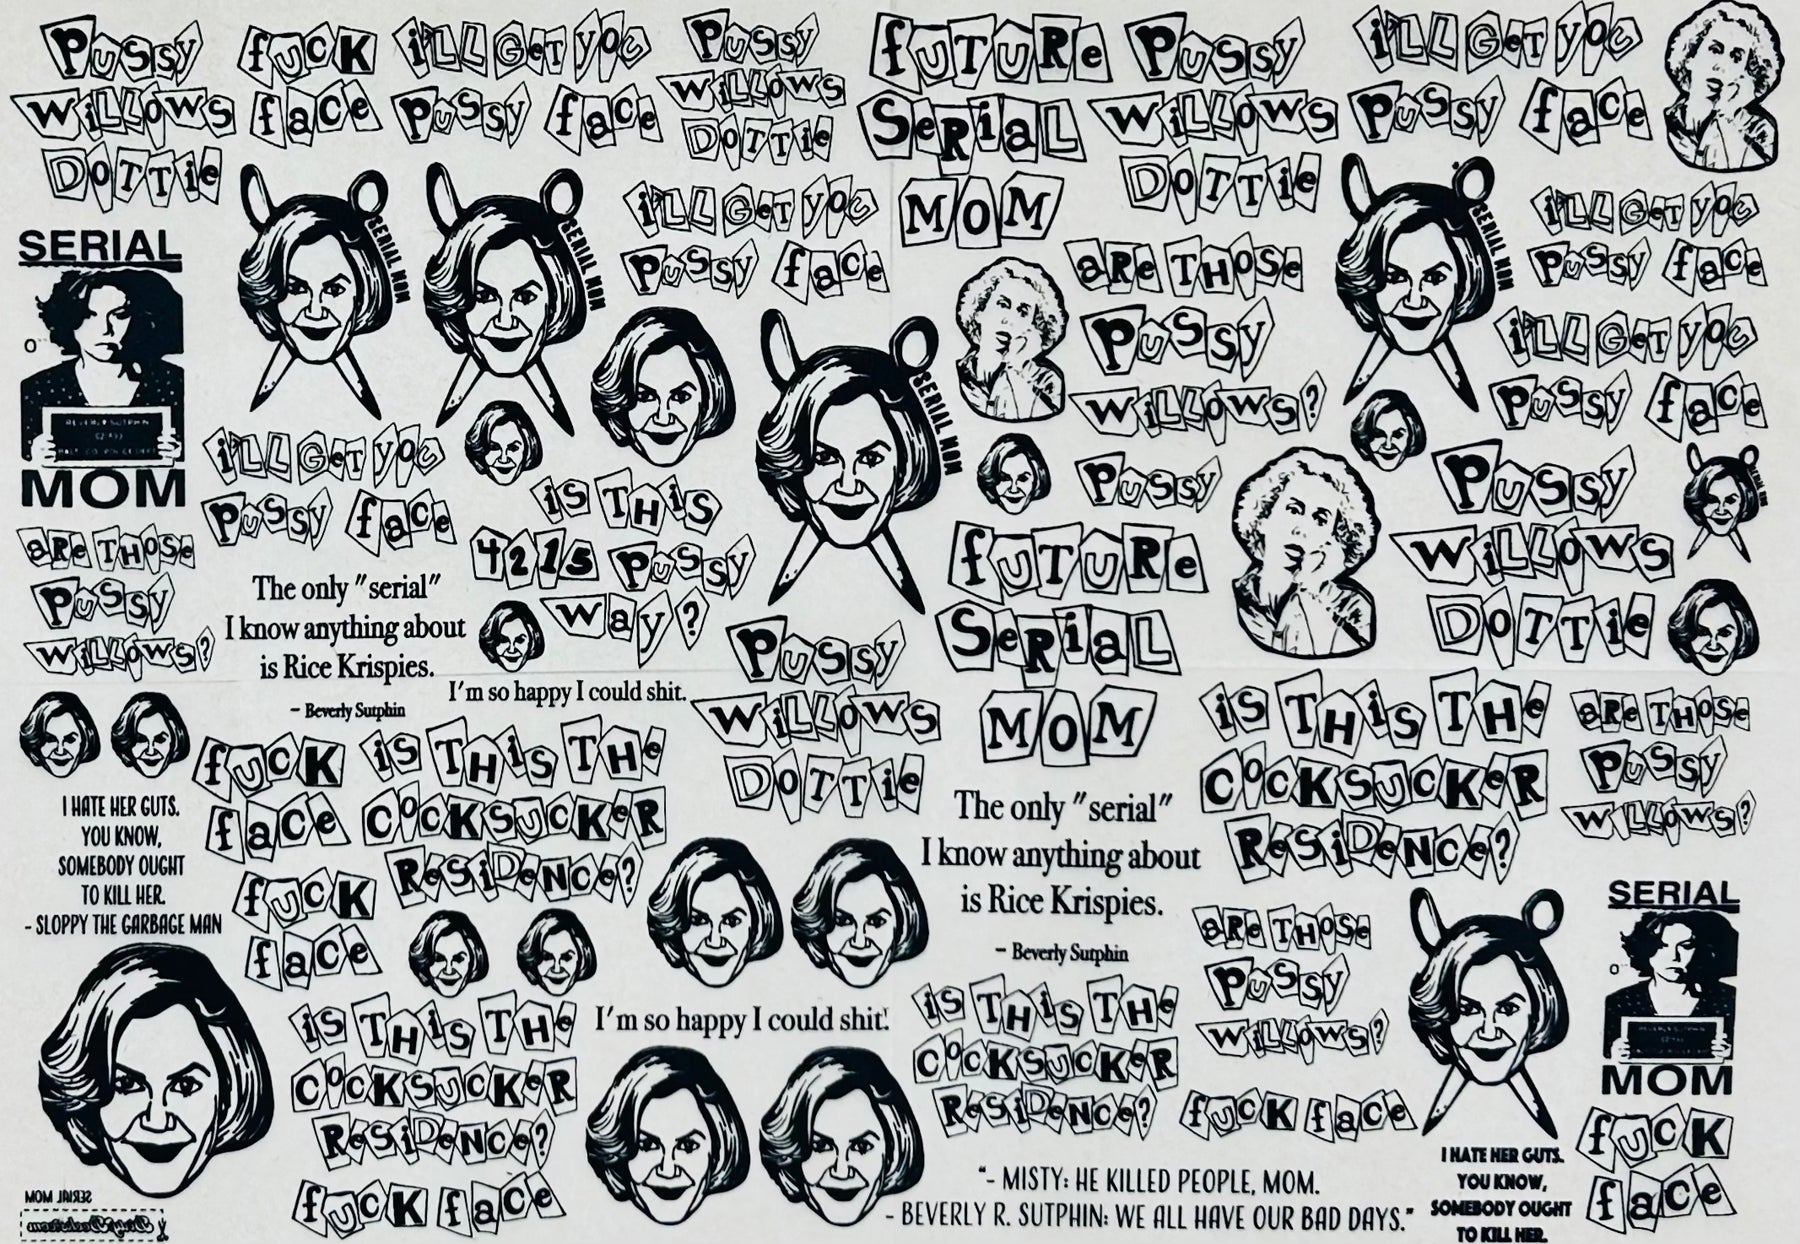 PUSSY
WILLOWS
DOTTIE
FUCK
FACE
I'LL GET YOU
PUSSY FACE
PUSSY
WILLOWS
DOTTIE
FUTURE
SERIAL
MOM
PUSSY
WILLOWS
DOTTIE
I'LL GET YOU
PUSSY FACE
SERIAL
BEVERLY SUTPHIN
MOM
SERIAL MOM
SERIAL MOM
I'LL GET YOU
PUSSY FACE
SERIAL MOM
ARE THOSE
PUSSY
WILLOWS?
SERIAL MOM
I'LL GET YOU
PUSSY FACE
I'LL GET YOU
PUSSY FACE
I'LL GET YOU
PUSSY FACE
ARE THOSE
PUSSY
WILLOWS?
IS THIS
4215 PUSSY
WAY?
PUSSY
FUTURE
SERIAL
MOM
PUSSY
WILLOWS
DOTTIE
SERIAL MOM
The only "serial"
I know anything about
is Rice Krispies.
- Beverly Sutphin
I'm so happy I could shit.
PUSSY
WILLOWS
DOTTIE
IS THIS THE
COCKSUCKER
RESIDENCE?
ARE THOSE
PUSSY
WILLOWS?
I HATE HER GUTS.
YOU KNOW,
SOMEBODY OUGHT
TO KILL HER.
- SLOPPY THE GARBAGE MAN
FUCK
FACE
IS THIS THE
COCKSUCKER
RESIDENCE?
FUCK
FACE
The only "serial"
I know anything about
is Rice Krispies.
- Beverly Sutphin
ARE THOSE
PUSSY
WILLOWS?
SERIAL
BEVERLY SUTPHIN
MOM
IS THIS THE
COCKSUCKER
RESIDENCE?
FUCK FACE
I'm so happy I could shit.
IS THIS THE
COCKSUCKER
RESIDENCE?
FUCK FACE
"- MISTY: HE KILLED PEOPLE, MOM.
- BEVERLY R. SUTPHIN: WE ALL HAVE OUR BAD DAYS."
I HATE HER GUTS.
YOU KNOW,
SOMEBODY OUGHT
TO KILL HER.
FUCK
FACE
SERIAL MOM